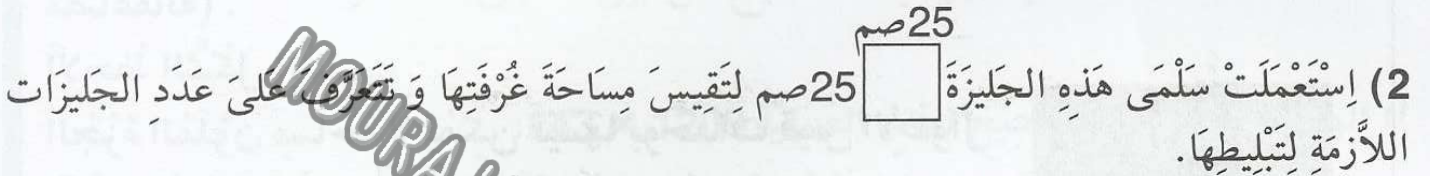 25صم
2) اِسْتَعْمَلَتْ سَلْمَى هَذِهِ الجَليزَةَ 25صم لِتَقِيسَ مِسَاحَةَ غُرْفَتِهَا وَ تَتَعَرَّفَ عَلىَ عَدَدِ الجَليزَات
اللاَّزمَةِ لِتَبْلِيطِهَا.